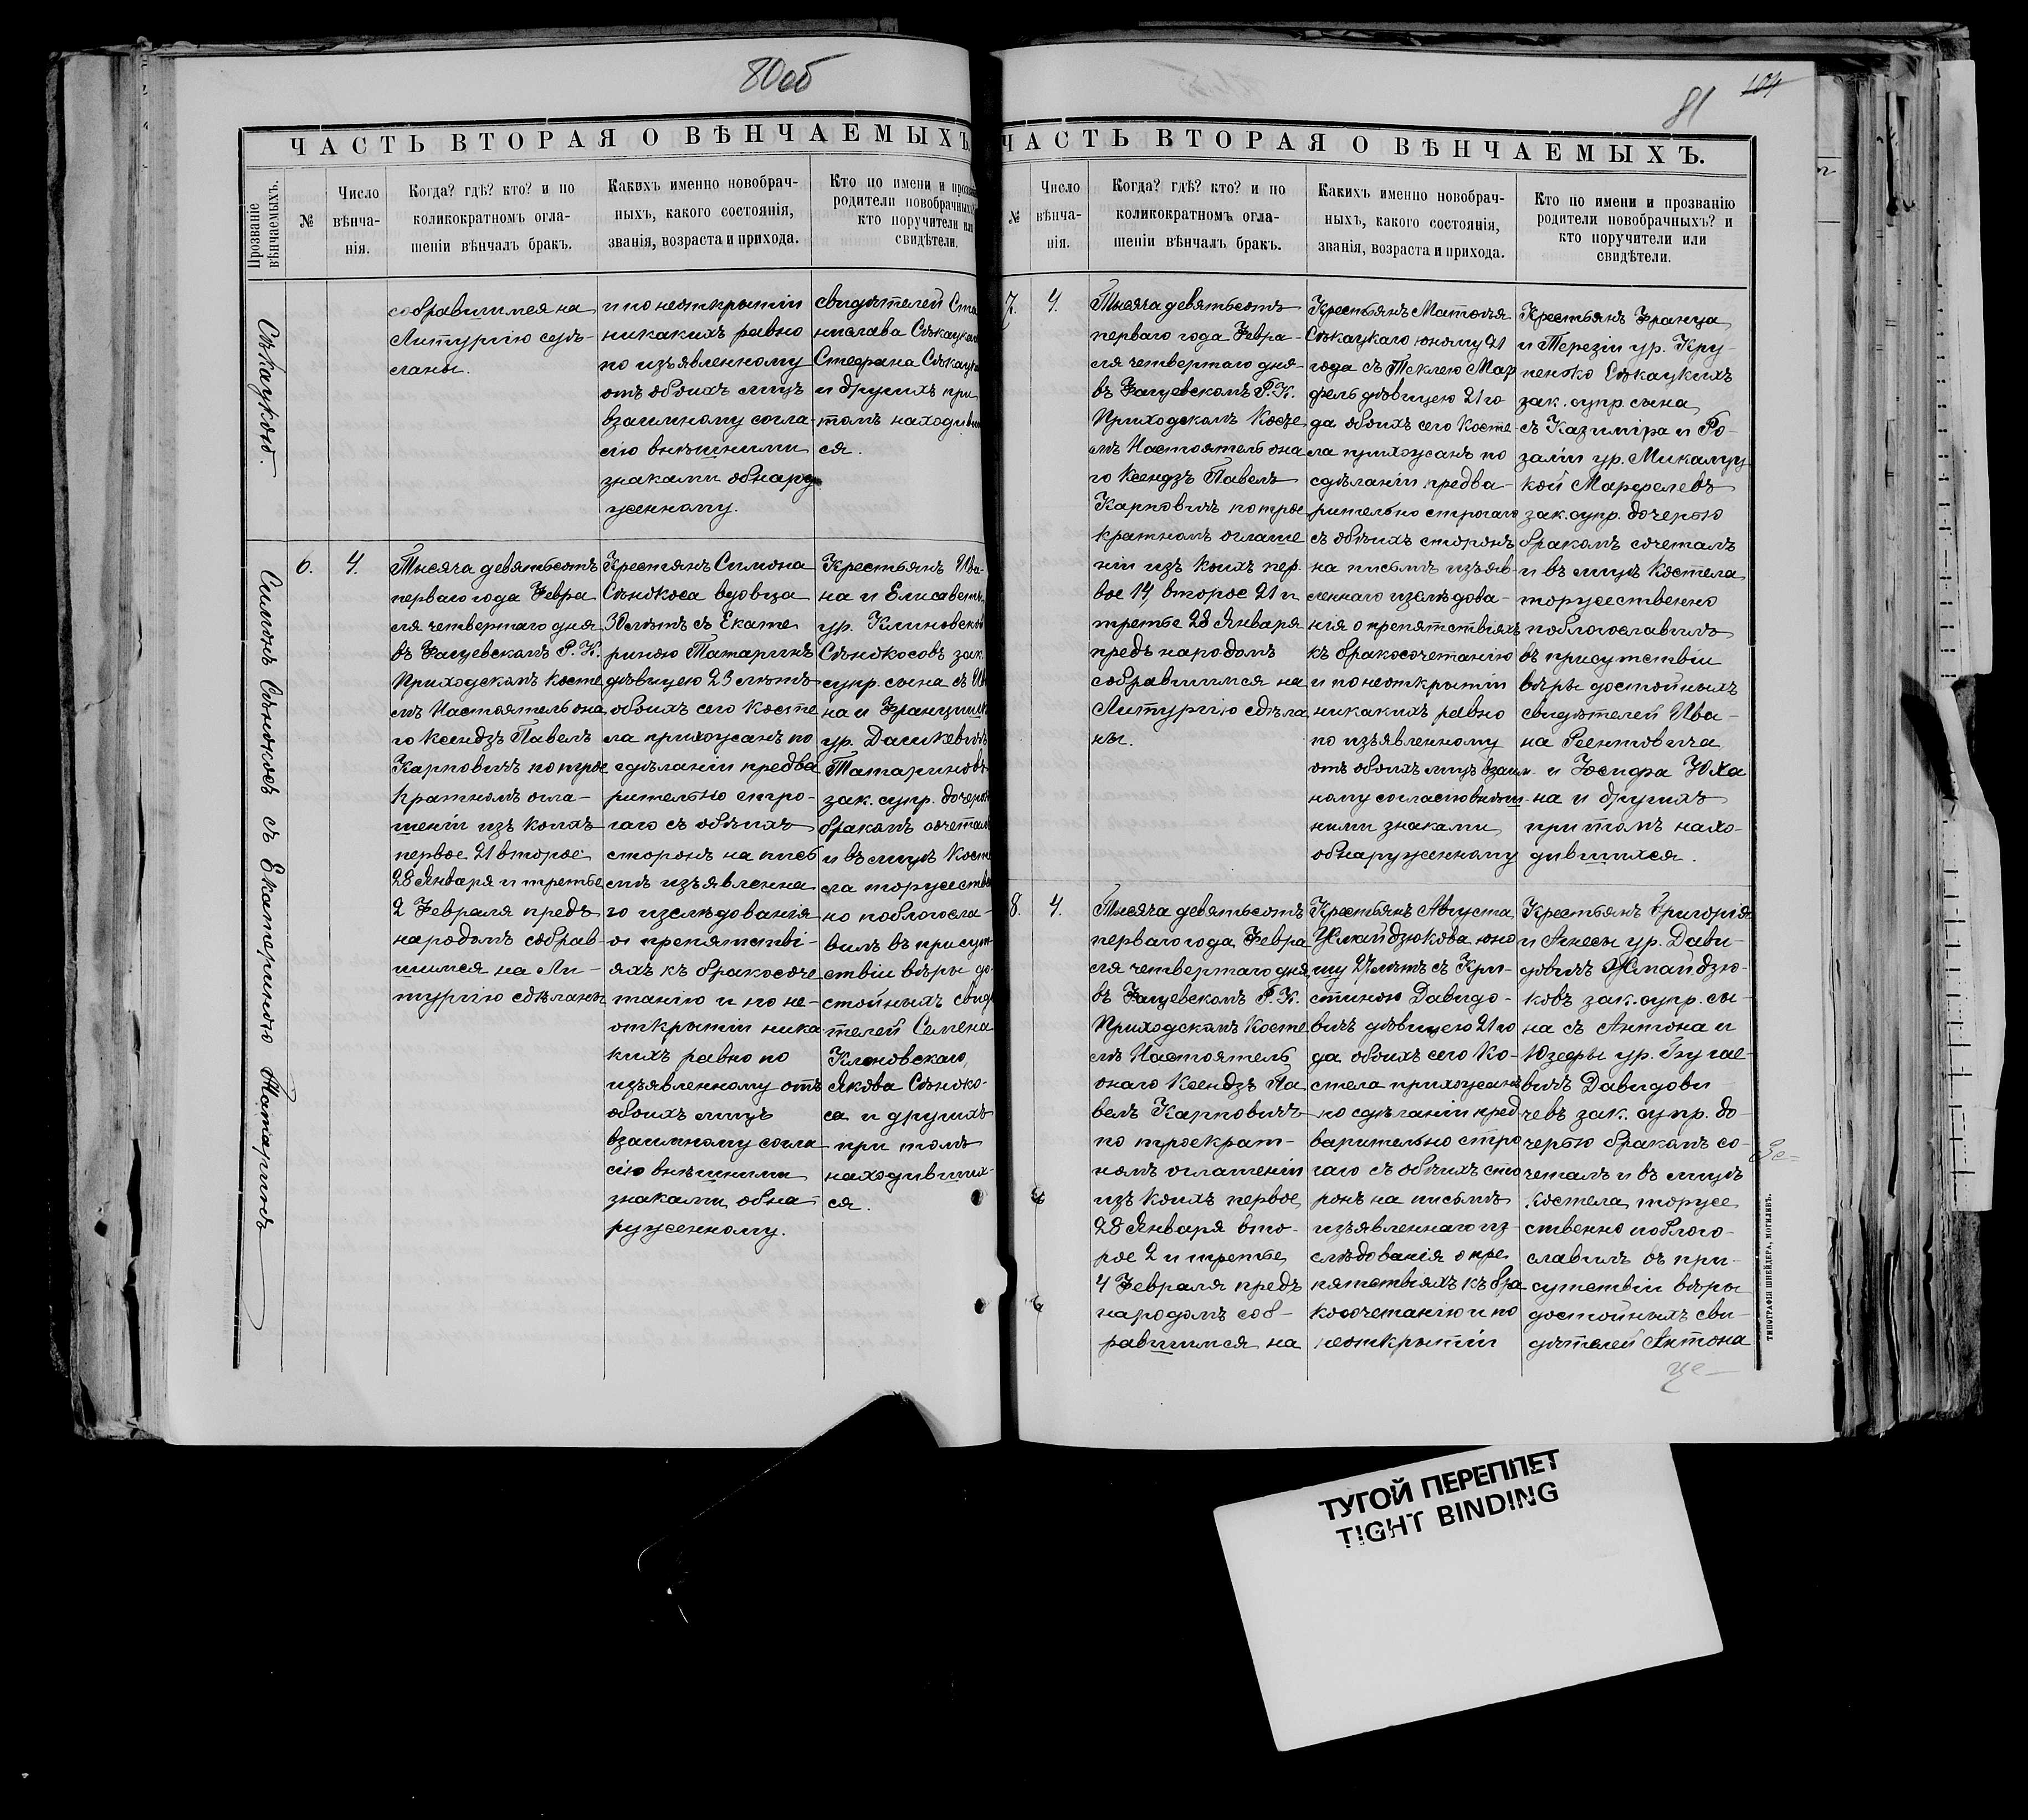 80об
ЧАСТЬ ВТОРАЯ О ВѢНЧАЕМЫХЪ.
Прозваніе вѣнчаемыхъ.
№
Число
вѣнча-
нія.
Когда? гдѣ? кто? и по
коликократномъ огла-
шеніи вѣнчалъ бракъ.
Какихъ именно новобрач-
ныхъ, какого состоянія,
званія, возраста и прихода.
Кто по имени и прозва
родители новобрачныхъ
кто поручители или
свидѣтели.
собравшимся на
Литургію сдѣ-
ланы.
и по неоткрытіи
никакихъ равно
по изъявленному
отъ обоихъ лицъ
взаимному согла-
сію внѣшними
знаками обнару
женному.
свидѣтелей Ста
нислава Сѣкацка
Стефана Сѣкацка
и другихъ при
томъ находив
ся.
Симонъ Сѣнокосъ съ Екатериною Татаринъ
6.
4.
Тысяча девятьсотъ
перваго года Февра
ля четвертаго дня
въ Фащевскомъ Р. К.
Приходскомъ Косте
лѣ Настоятель она
го Ксендзъ Павелъ
Карповичъ по трое
кратномъ огла-
шеніи изъ коихъ
первое 21 второе
28 Января и третье
2 Февраля предъ
народомъ собрав-
шимся на Ли-
тургію сдѣланы
Крестянъ Симона
Сѣнокоса вдовца
30 лѣтъ съ Екате
риною Татаринъ
дѣвицею 23 лѣтъ
обоихъ сего Косте
ла прихожанъ по
сдѣланіи предва
рительно стро-
гаго съ обѣихъ
сторонъ на пись
мѣ изъявленна
го изслѣдованія
о препятстві-
яхъ къ бракосоче
танію и по не-
открытіи ника
кихъ равно по
изъявленному отъ
обоихъ лицъ
взаимному согла
сію внѣшними
знаками обна
руженному.
Крестьянъ Ива-
на и Елисаветы
ур. Клиновска
Сѣнокосовъ зак.
супр. сына съ Ив
на и Францишк
ур. Дашкевичъ
Татариновъ
зак. супр. дочерью
бракомъ сочеталъ
и въ лицѣ Косте
ла торжествен
но поблагосла-
вилъ въ присут
ствіи вѣры до-
стойныхъ свидѣ
телей Семена
Клоновскаго,
Якова Сѣноко-
са и другихъ
при томъ
находивших-
ся.
104
81
ЧАСТЬ ВТОРАЯ О ВѢНЧАЕМЫХЪ.
№
Число
вѣнча-
нія.
Когда? гдѣ? кто? и по
коликократномъ огла-
шеніи вѣнчалъ бракъ.
Какихъ именно новобрач-
ныхъ, какого состоянія,
званія, возраста и прихода.
Кто по имени и прозванію
родители новобрачныхъ? и
кто поручители или
свидѣтели.
7.
4.
Тысяча девятьсотъ
перваго года Февра-
ля четвертаго дня
въ Фащевскомъ Р. К.
Приходскомъ Косте
лѣ Настоятель она
го Ксендзъ Павелъ
Карповичъ по трое
кратномъ оглаше
ніи изъ коихъ пер
вое 14, второе 21 и
третье 28 Января
предъ народомъ
собравшимся на
Литургію сдѣла
ны.
Крестьянъ Матвѣя
Сѣкацкаго юношу 21
года съ Теклею Мар
фель дѣвицею 21 го
да обоихъ сего Косте-
ла прихожанъ по
сдѣланіи предва-
рительно строгаго
съ обѣихъ сторонъ
на письмѣ изъяв-
леннаго изслѣдова-
нія о препятствіяхъ
къ бракосочетанію
и по неоткрытіи
никакихъ равно
по изъявленному
отъ обоихъ лицъ взаим-
ному согласію внѣш-
ними знаками
обнаруженному
Крестьянъ Франца
и Терезіи ур. Кру-
пенько Сѣкацкихъ
зак. супр. сына
съ Казиміра и Ро-
заліи ур. Микалуц
кой Марфелевъ
зак. супр. дочерью
бракомъ сочеталъ
и въ лицѣ Костела
торжественно
поблагославилъ
въ присутствіи
вѣры достойныхъ
свидѣтелей Ива-
на Реентовича
и Іосифа Юха
на и другихъ
при томъ нахо-
дившихся.
8.
4.
Тысяча девятьсотъ
перваго года Февра
ля четвертаго дня
въ Фащевскомъ Р. К.
Приходскомъ Косте
лѣ Настоятель
онаго Ксендзъ Па
велъ Карповичъ
по троекрат-
номъ оглашеніи
изъ коихъ первое
28 Января вто-
рое 2 и третье
4 Февраля предъ
народомъ соб-
равшимся на
Крестьянъ Августа
Жмайдзюкова юно
шу 27 лѣтъ съ Кри-
стиною Давидо-
вичъ дѣвицею 21 го
да обоихъ сего Ко-
стела прихожанъ
по сдѣланіи пред
варительно стро
гаго съ обѣихъ сто
ронъ на письмѣ
изъявленнаго из-
слѣдованія о пре
пятствіяхъ къ бра
косочетанію и по
неоткрытіи
Крестьянъ Григорія
и Агнесы ур. Дави-
довичъ Жмайдзю-
ковъ зак. супр. сы-
на съ Антона и
Юзефы ур. Бугае-
вичъ Давидови
чевъ зак. супр. до-
черью бракомъ со-
четалъ и въ лицѣ
Костела торже
ственно поблаго-
славилъ въ при-
сутствіи вѣры
достойныхъ сви-
дѣтелей Антона
ТИПОГРАФІЯ ШНЕЙДЕРА, МОГИЛЕВЪ.
ТУГОЙ ПЕРЕПЛЕТ
TIGHT BINDING